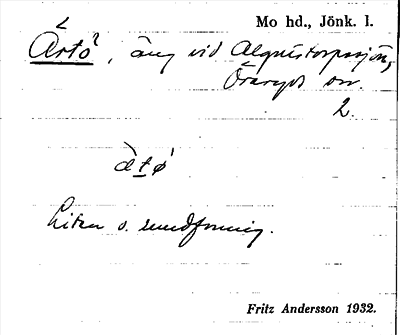 Mo hd., Jönk. l.
Ärtö, äng vid Algustorpasjön,
Öreryds sn.
2.
ä̀tǿ
Liten o. rundformig.
Fritz Andersson 1932.